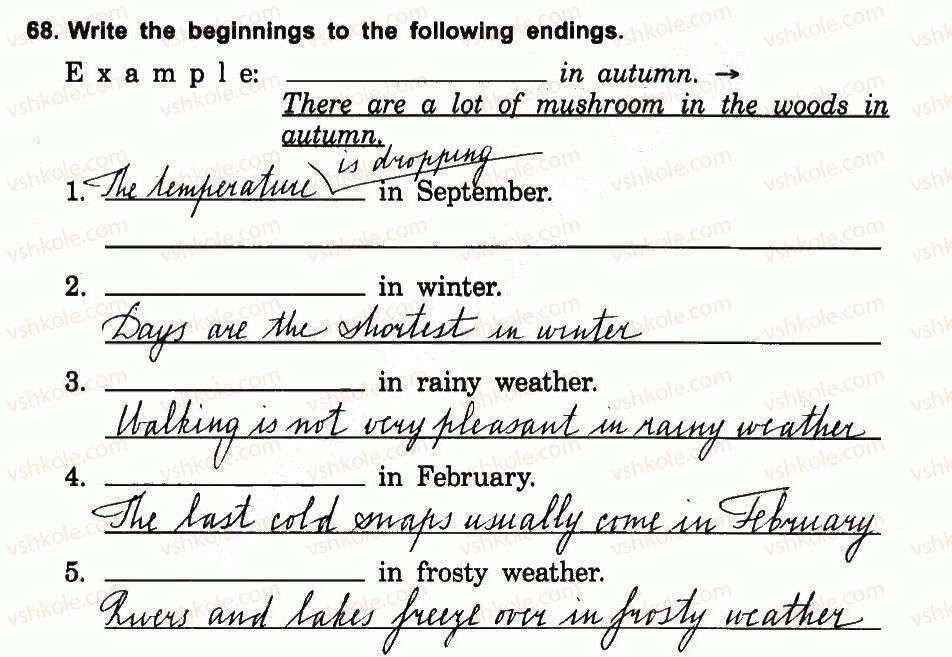 68. Write the beginnings to the following endings.
Example: ____ in autumn. →
There are a lot of mushroom in the woods in
autumn.
is dropping
1. The temperature in September.
2. ____ in winter.
Days are the shortest in winter
3. ____ in rainy weather.
Walking is not very pleasant in rainy weather
4. ____ in February.
The last cold snaps usually come in February
5. ____ in frosty weather.
Rivers and lakes freeze over in frosty weather
vshkole.com